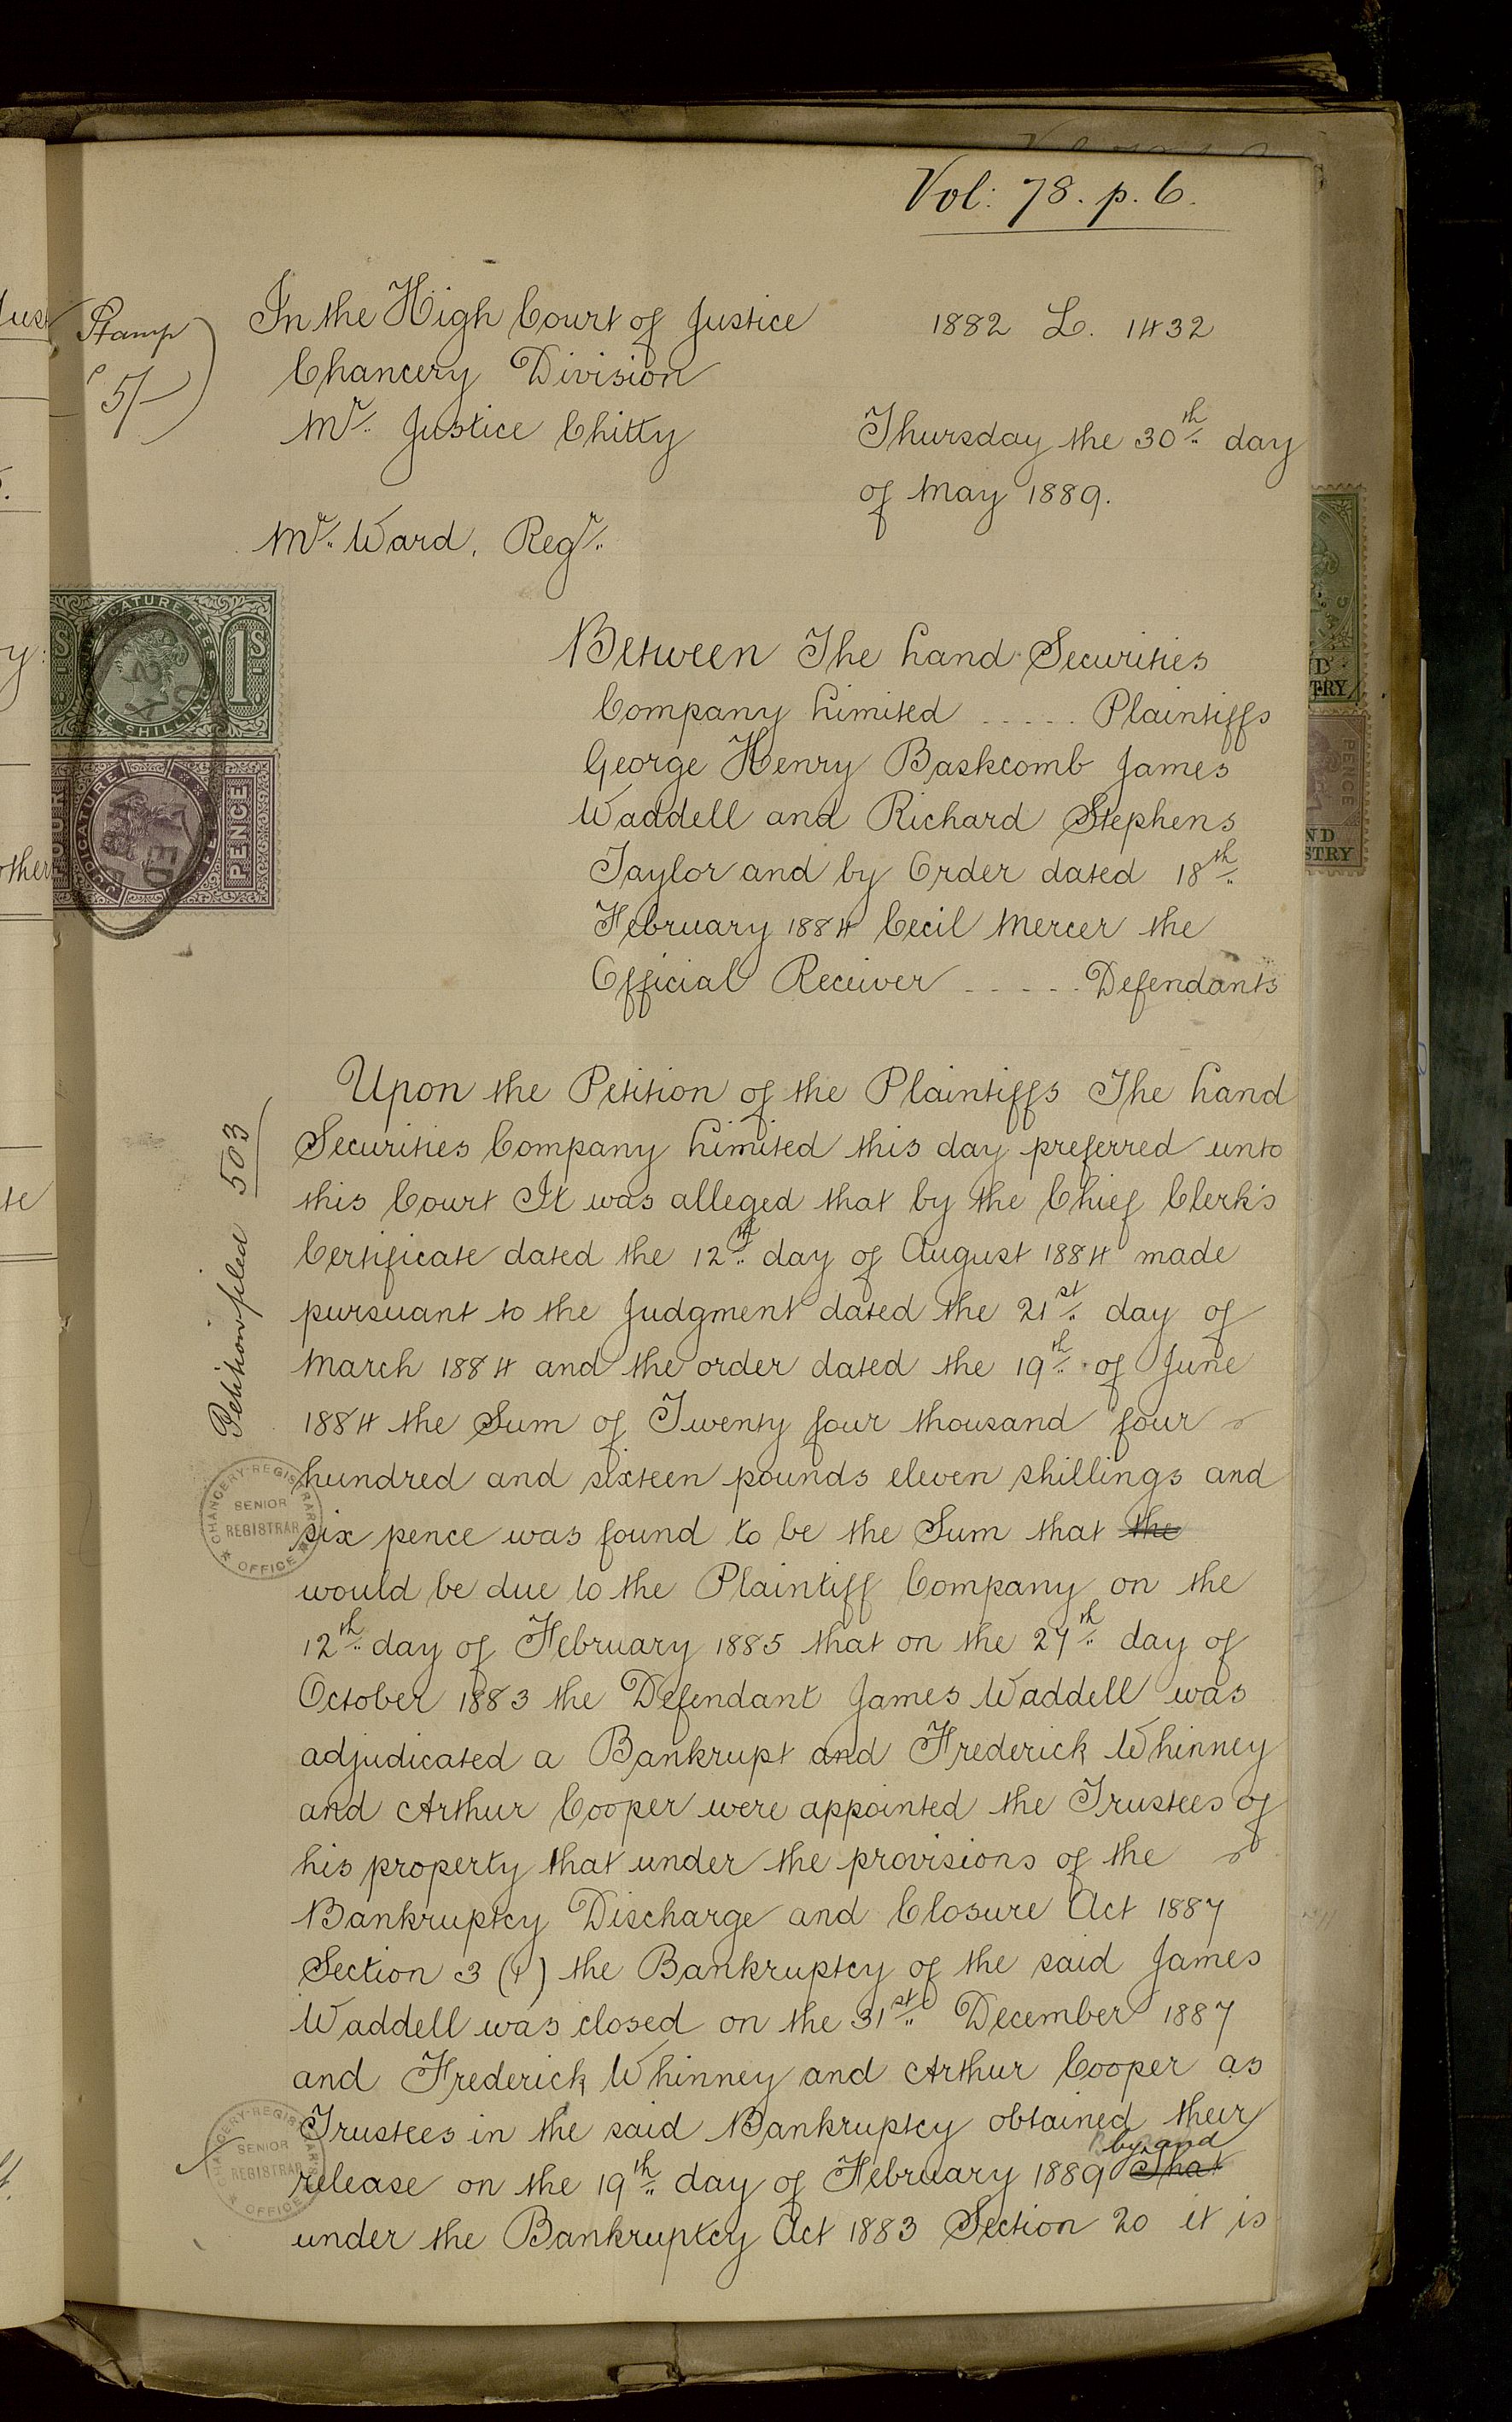 Vol: 78. p. 6.
Stamp
5/-
In the High Court of Justice
1882 L. 1432
Chancery Division
Mr. Justice Chitty
Thursday the 30th day
of May 1889.
Mr. Ward, Regr.
JUDICATURE FEES
1S
ONE SHILLING
JUDICATURE
PENCE
Between The Land Securities
Company Limited ..... Plaintiffs
George Henry Baskcomb James
Waddell and Richard Stephens
Taylor and by Order dated 18th
February 1884 Cecil Mercer the
Official Receiver ..... Defendants
Petition filed 503
Upon the Petition of the Plaintiffs The Land
Securities Company Limited this day preferred unto
this Court It was alleged that by the Chief Clerk's
Certificate dated the 12th day of August 1884 made
pursuant to the Judgment dated the 21st day of
March 1884 and the order dated the 19th of June
1884 the Sum of Twenty four thousand four
hundred and sixteen pounds eleven shillings and
six pence was found to be the Sum that the
would be due to the Plaintiff Company on the
12th day of February 1885 that on the 27th day of
October 1883 the Defendant James Waddell was
adjudicated a Bankrupt and Frederick Whinney
and Arthur Cooper were appointed the Trustees of
his property that under the provisions of the
Bankruptcy Discharge and Closure Act 1887
Section 3 (1) the Bankruptcy of the said James
Waddell was closed on the 31st December 1887
and Frederick Whinney and Arthur Cooper as
Trustees in the said Bankruptcy obtained their
by and
release on the 19th day of February 1889 That
under the Bankruptcy Act 1883 Section 20 it is
CHANCERY REGISTRAR'S
SENIOR
REGISTRAR
OFFICE
CHANCERY REGISTRAR'S
SENIOR
REGISTRAR
OFFICE
PENCE